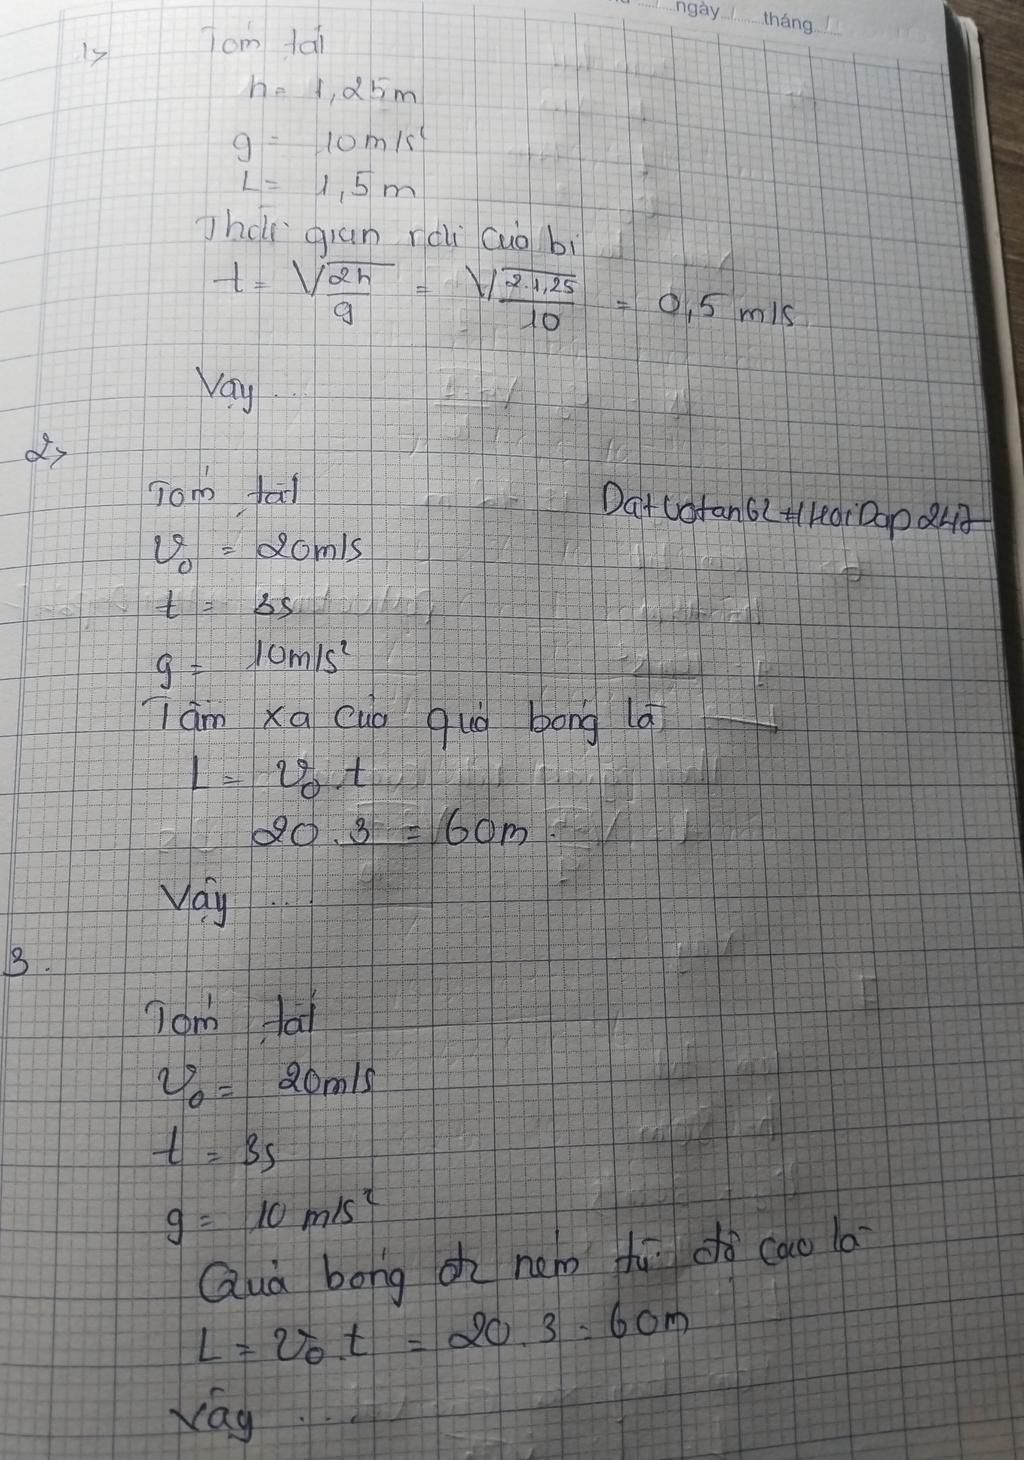 ngày / tháng /
1> Tóm tắt
h = 1,25m
g = 10m/s²
L = 1,5m
Thời gian rơi của bi
t = √2h/g = √2.1,25/10 = 0,5 m/s
Vậy ...
2>
Tóm tắt
Datvotan62#HoiDap247
v₀ = 20m/s
t = 3s
g = 10m/s²
Tầm xa của quả bóng là
L = v₀.t
20.3 = 60m.
Vậy ...
3.
Tóm tắt
v₀ = 20m/s
t = 3s
g = 10 m/s²
Quả bóng đc ném từ độ cao là
L = v₀.t = 20.3 = 60m
Vậy ....